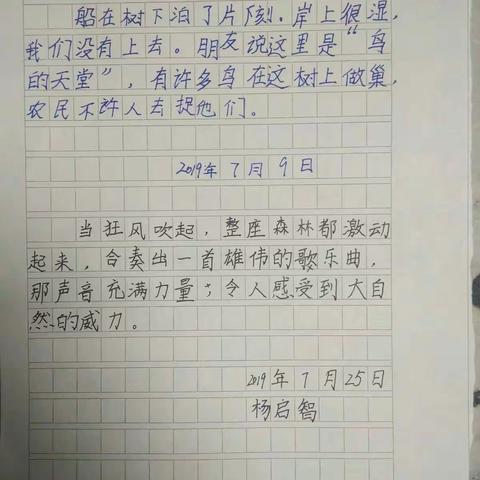 船在树下泊了片刻.岸上很湿,
我们没有上去。朋友说这里是“鸟
的天堂”,有许多鸟在这树上做巢,
农民不许人去捉他们。
2019年7月9日
当狂风吹起,整座森林都激动
起来,合奏出一首雄伟的歌乐曲,
那声音充满力量;令人感受到大自
然的威力。
2019年7月25日
杨启智